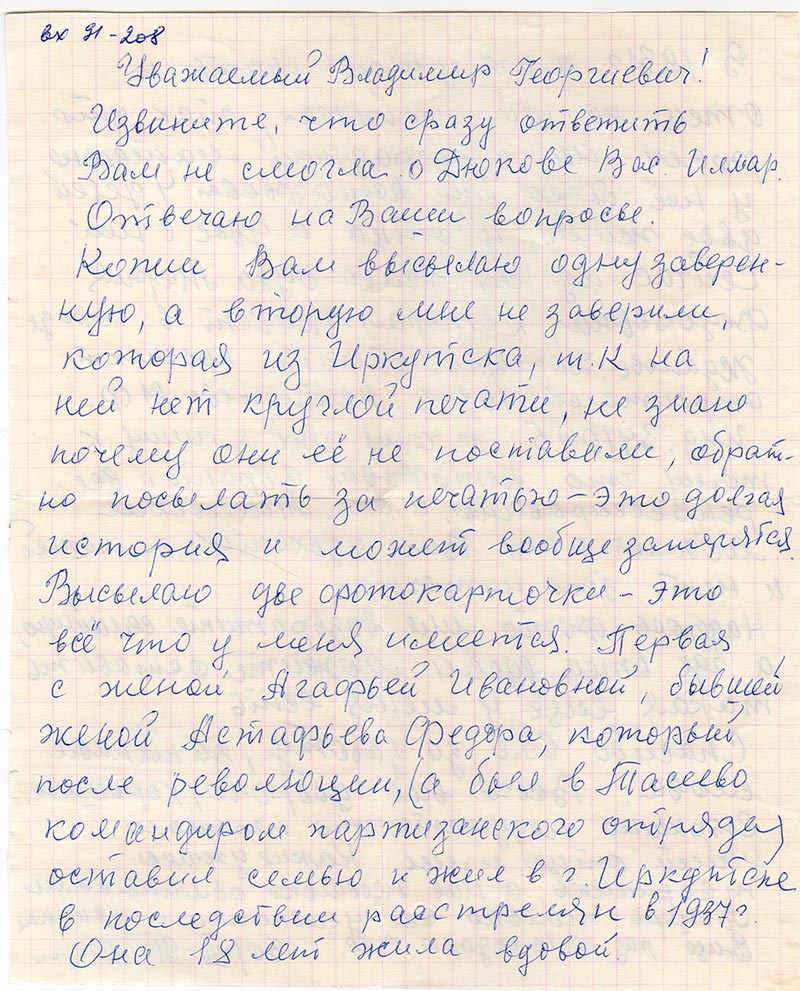 вх 91-208
Уважаемый Владимир Георгиевич!
Извините, что сразу ответить
Вам не смогла о Дюкове Вас. Илмар.
Отвечаю на Ваши вопросы.
Копии Вам высылаю одну заверен-
ную, а вторую мне не заверили,
которая из Иркутска, т.К на
ней нет круглой печати, не знаю
почему они её не поставили, обрат-
но посылать за печатью – это долгая
история и может вообще затеряться.
Высылаю две фотокарточки – это
всё что у меня имеется. Первая
с женой Агафьей Ивановной, бывшей
женой Астафьева Федора, который
после революции, (а был в Тасеево
командиром партизанского отряда)
оставил семью и жил в г Иркутске
в последствии расстрелян в 1937г.
Она 18 лет жила вдовой.